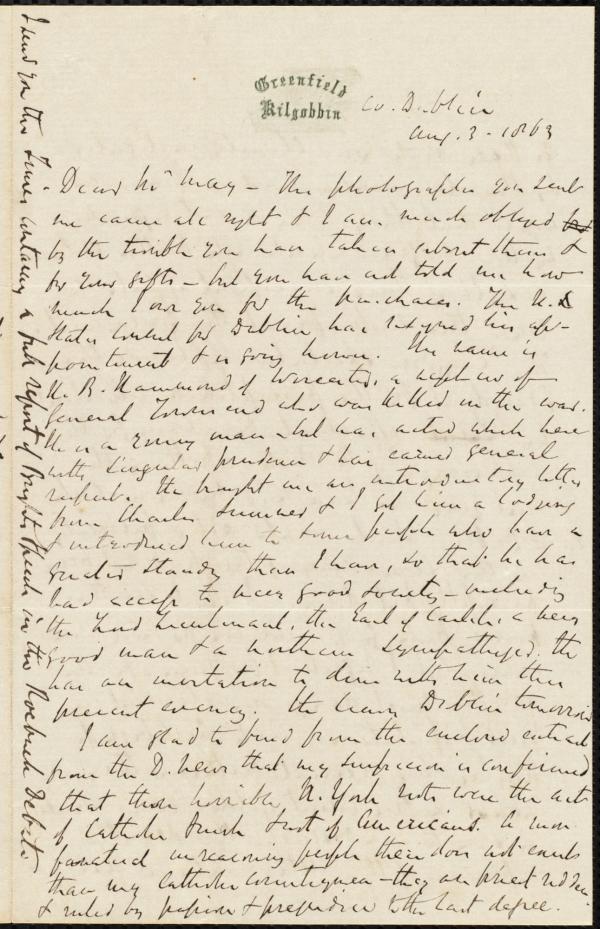 Greenfield
Kilgobbin
Co. Dublin
Aug. 3 - 1863
Dear Mr May - The photographs you sent
me came all right & I am much obliged for
by the trouble you have taken about them &
for your gifts - but you have not told me how
much I owe you for the purchases. The U.S.
States Consul for Dublin has resigned his ap-
pointment & is going home. His name is
H. B. Hammond of Worcester, a nephew of
General Townsend who was killed in the war.
He is a young man - but has acted while here
with singular prudence & has earned general
respect. He brought me an introductory letter
from Charles Sumner & I got him a lodging
& introduced him to some people who have a
greater standing than I have, so that he has
had access to very good society - including
the Lord Lieutenant, the Earl of Carlisle, a very
good man & a northern sympathizer. He
has an invitation to dine with him this
present evening. He leaves Dublin tomorrow
I am glad to find from the enclosed extract
from the D. News that my suspicion is confirmed
that those horrible N. York riots were the acts
of Catholic Irish & not of Americans. A more
fanatical unreasoning people there does not exist
than my Catholic countrymen - they are priest ridden
& ruled by passion & prejudice to the last degree.
I send you the Times containing a full report of Bright's speech in the Roebuck Debate